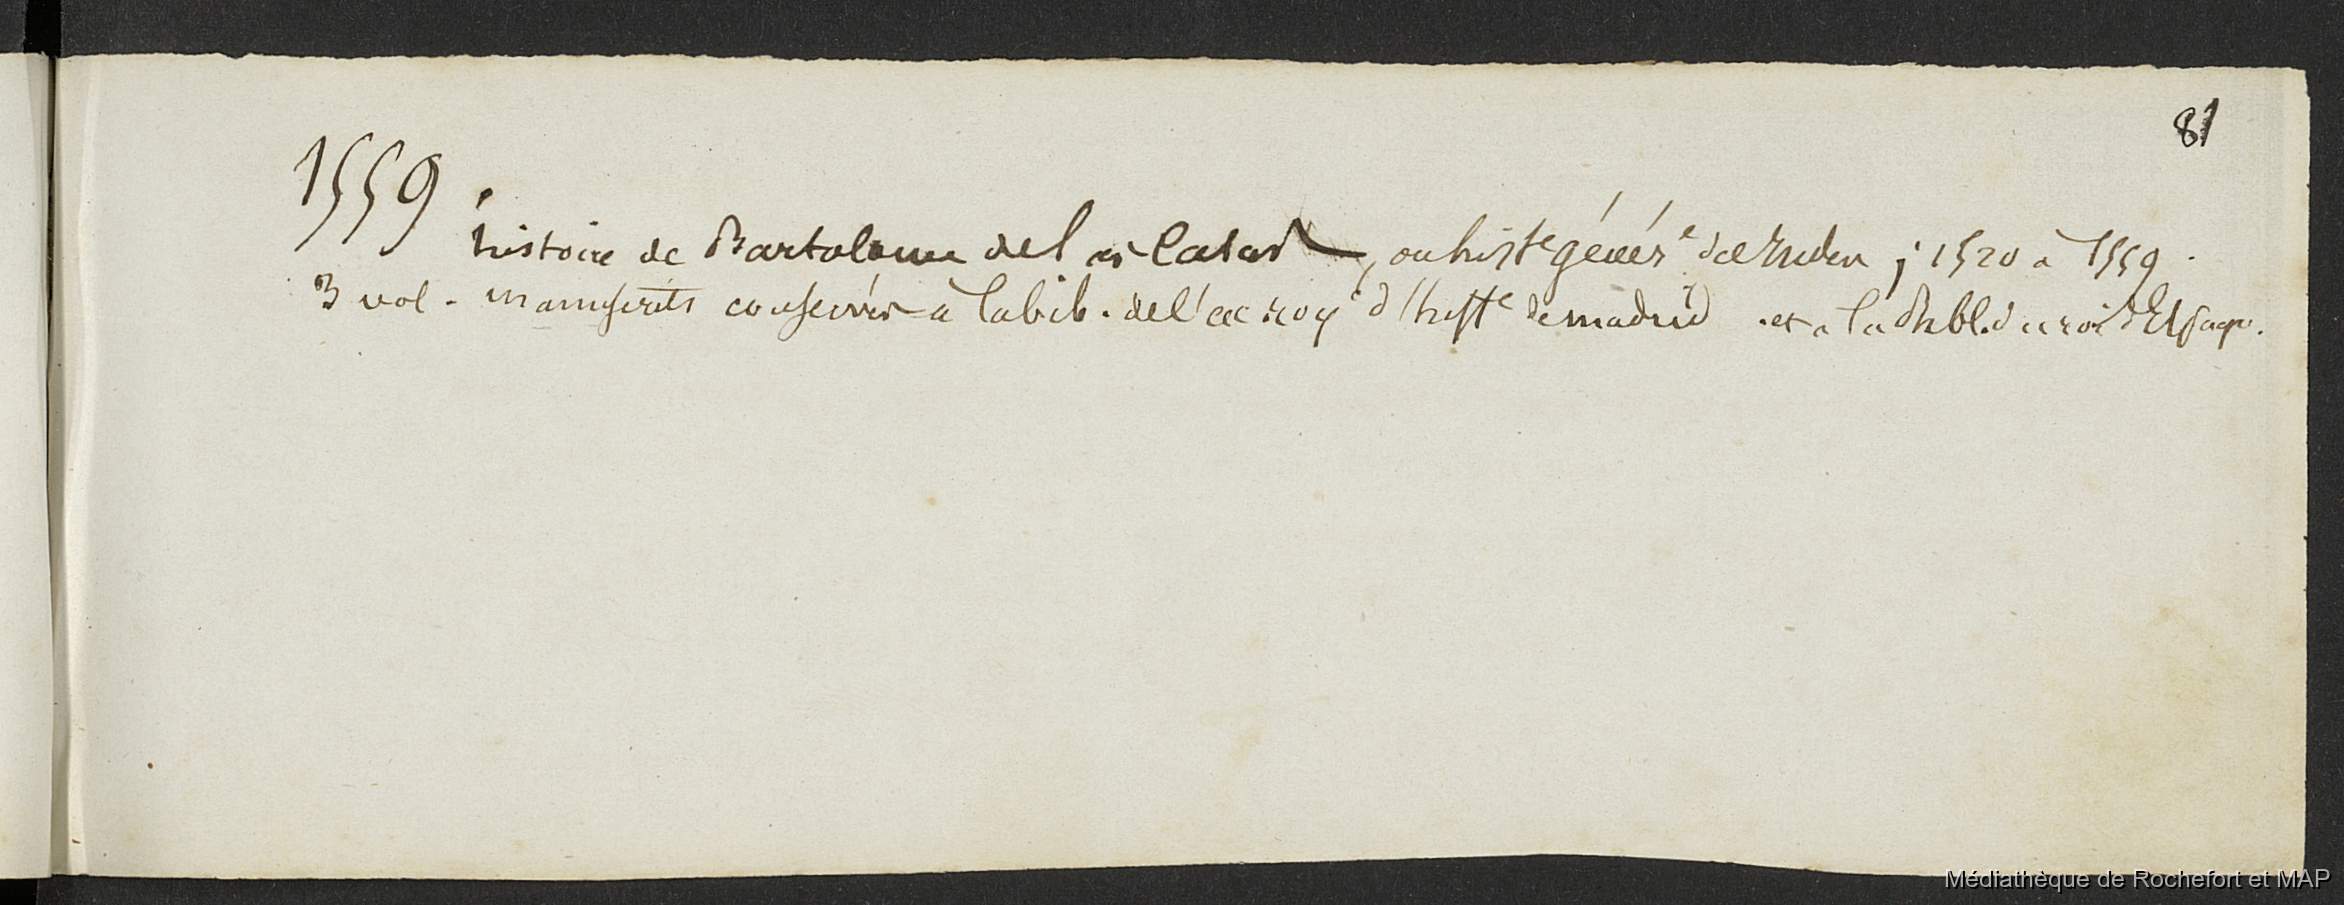 81
1559
histoire de Bartolome de las Casas, ou histe génére des Indes ; 1520 à 1559.
3 vol. manuscrits conservés à la bib. de l'ac roy d'histe de madrid . et a la Bibl. du roi d'Espagn.
Médiathèque de Rochefort et MAP